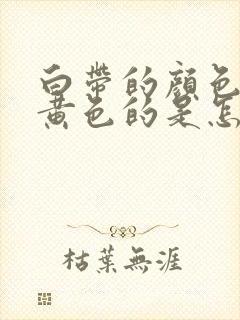 白帶的顏色
黃色的是怎
枯葉無涯